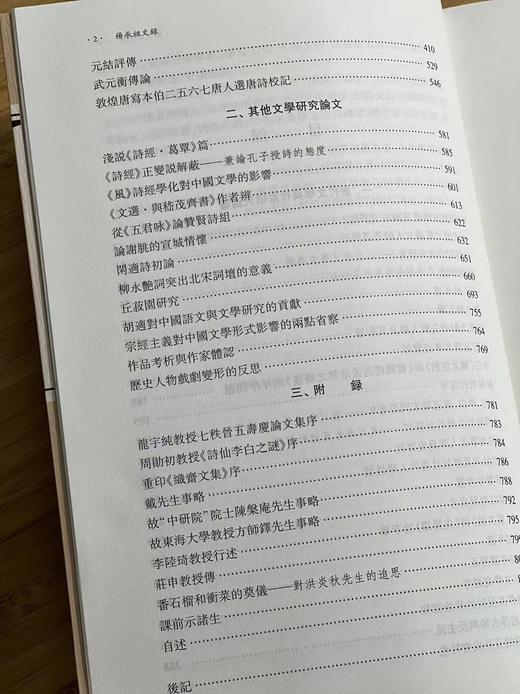 ·2· 楊承祖文錄
元結評傳 410
武元衡傳論 529
敦煌唐寫本伯二五六七唐人選唐詩校記 546
二、其他文學研究論文
淺説《詩經·葛覃》篇 581
《詩經》正變説解蔽——兼論孔子授詩的態度 585
《風》詩經學化對中國文學的影響 591
《文選·與嵇茂齊書》作者辨 601
從《五君咏》論贊賢詩組 613
論謝朓的宣城情懷 622
閑適詩初論 632
柳永艷詞突出北宋詞壇的意義 651
丘菽園研究 660
胡適對中國語文與文學研究的貢獻 693
宗經主義對中國文學形式影響的兩點省察 755
作品考析與作家體認 764
歷史人物戲劇變形的反思 769
三、附 録
龍宇純教授七秩晉五壽慶論文集序 781
周勛初教授《詩仙李白之謎》序 783
重印《織齋文集》序 784
戴先生事略 786
故“中研院”院士陳槃庵先生事略 788
故東海大學教授方師鐸先生事略 792
李陸琦教授行述 795
莊申教授傳
番石榴和衡菜的奠儀——對洪炎秋先生的追思
課前示諸生
自述
後記